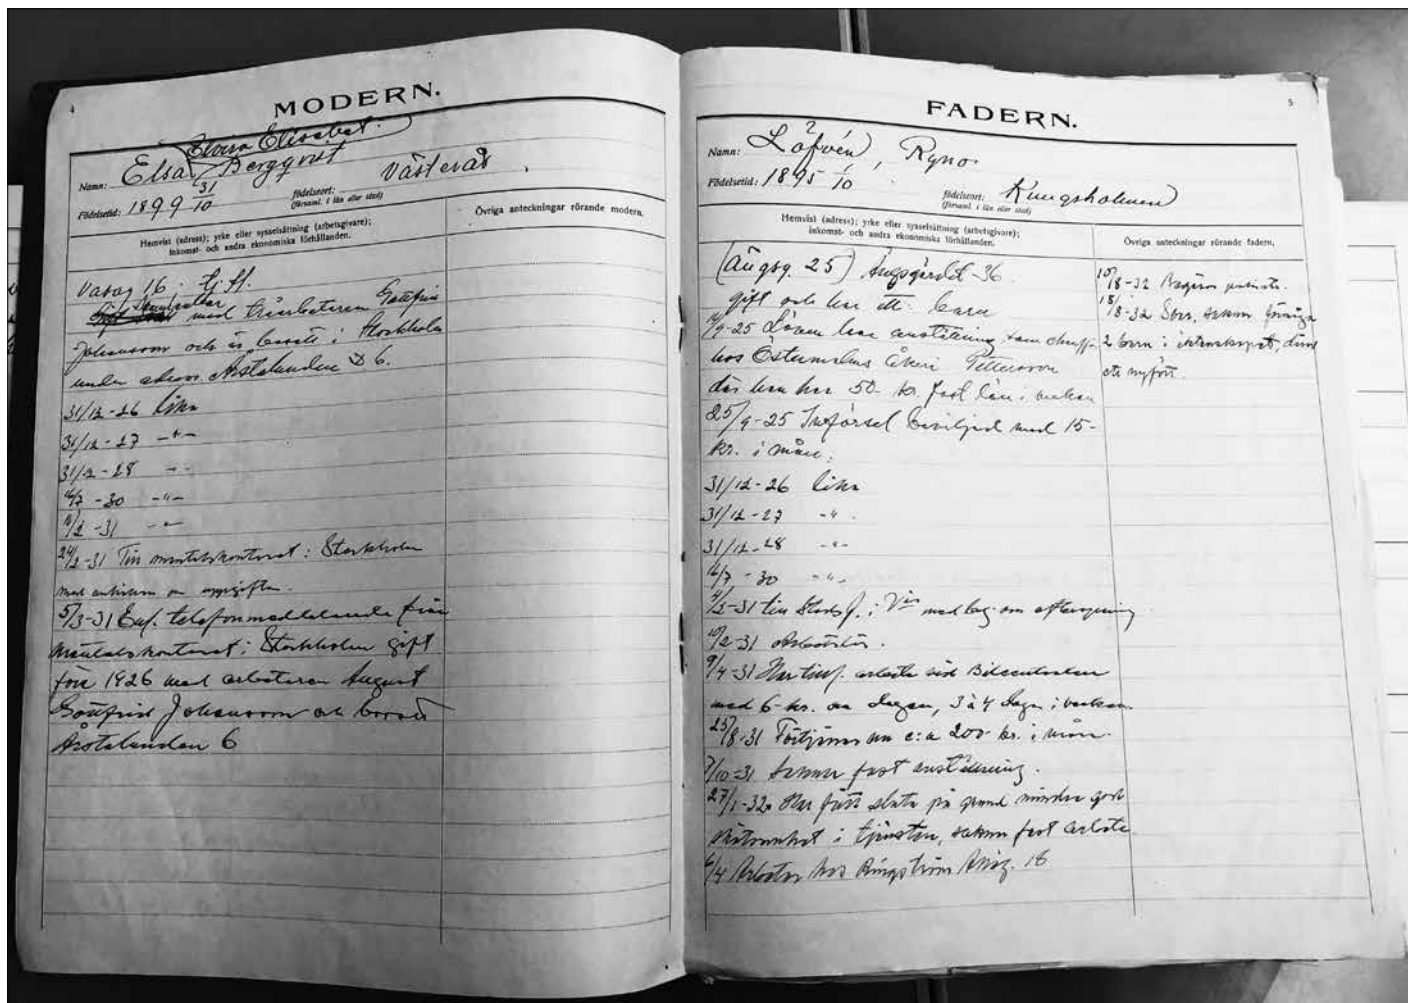 4
MODERN.
Elvira Elisabet.
Namn: Elsa Bergqvist
Födelsetid: 1899 31/10 födelseort: Västerås
(församl. i län eller stad)
Hemvist (adress); yrke eller sysselsättning (arbetsgivare);
inkomst- och andra ekonomiska förhållanden.
Övriga anteckningar rörande modern.
Vasag 16.
med träarbetaren Gottfrid
Johansson och är bosatt i Stockholm
under adress Årstalunden 6.
31/12-26 lika
31/12-27 -"-
31/12-28 -"-
16/7-30 -"-
-31 -"-
24/2-31 Till mantalskontoret i Stockholm
med anhållan om uppgifter.
5/3-31 Enl. telefonmeddelande från
Mantalskontoret i Stockholm gift
före 1926 med arbetaren August
Gottfrid Johansson och bosatt
Årstalunden 6
5
FADERN.
Namn: Löfvén, Ryno
Födelsetid: 1895 2/10 födelseort: Kungsholmen
(församl. i län eller stad)
Hemvist (adress); yrke eller sysselsättning (arbetsgivare);
inkomst- och andra ekonomiska förhållanden.
Övriga anteckningar rörande fadern.
(Ängsg. 25) Ängsgärdet 36
gift och har ett barn
/9-25 har anställning som
hos Östermalms Åkeri Pettersson
där han har 50 kr. fast lön i veckan
25/9-25 Införsel beviljad med 15-
kr. i mån.
31/12-26 lika
31/12-27 -"-
31/12-28 -"-
16/7-30 -"-
-31 till i med beg. om
10/2-31 Arbetslös.
9/4-31 Har tillf. arbete vid Bilcentralen
med 6 kr. om dagen, 3 à 4 dagar i veckan
25/8-31 Förtjänar nu c:a 200 kr. i mån.
7/10-31 Saknar fast anställning.
27/1-32 Har fått sluta på grund mindre god
skötsamhet i tjänsten, saknar fast arbete
6/4 Arbetar hos Ringström 18
10/8-32 Begäran
18/8-32 saknar förmåga
2 barn i äktenskapet, därav
ett nyfött.